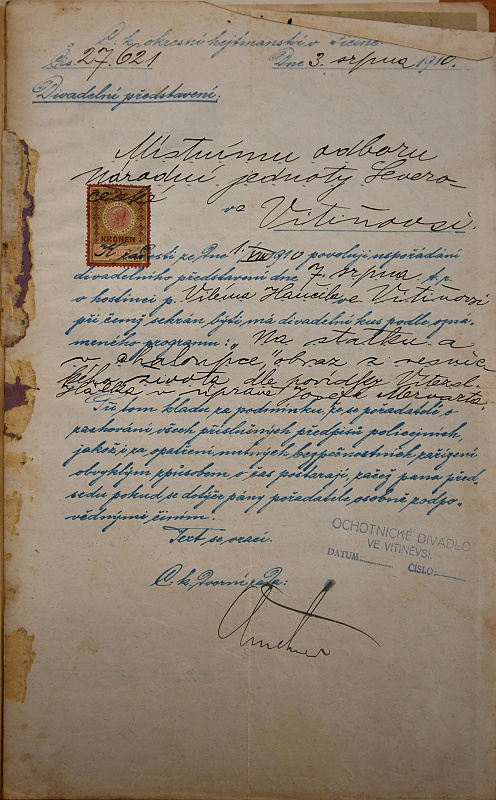 C. k. okresní hejtmanství v Jičíně
Čís. 27.621 Dne 3. srpna 1910.
Divadelní představení.
Místnímu odboru
Národní jednoty Severo-
české
ve Vitiňovsi.
KRONEN
K žádosti ze dne 1./VIII 1910 povoluji uspořádání
divadelního představení dne 7. srpna t. r.
v hostinci p. Viléma Hančila ve Vitiňovsi
při čemž sehrán býti má divadelní kus podle ozná-
meného programu: „Na statku a
v chaloupce“, obraz z vesnic-
kého života dle povídky Vítězsl.
Hálka v úpravě Josefa Mervarta.
Při tom kladu za podmínku, že se pořadatelé o
zachování všech příslušných předpisů policejních,
jakož i za opatření nutných bezpečnostních zařízení
obvyklým způsobem v čas postarají, začež pana před-
sedu pokud se dotýče pány pořadatele osobně zodpo-
vědnými činím.
Text se vrací.
OCHOTNICKÉ DIVADLO
VE VITINĚVSI.
DATUM: ČÍSLO:
C. k. dvorní rada: